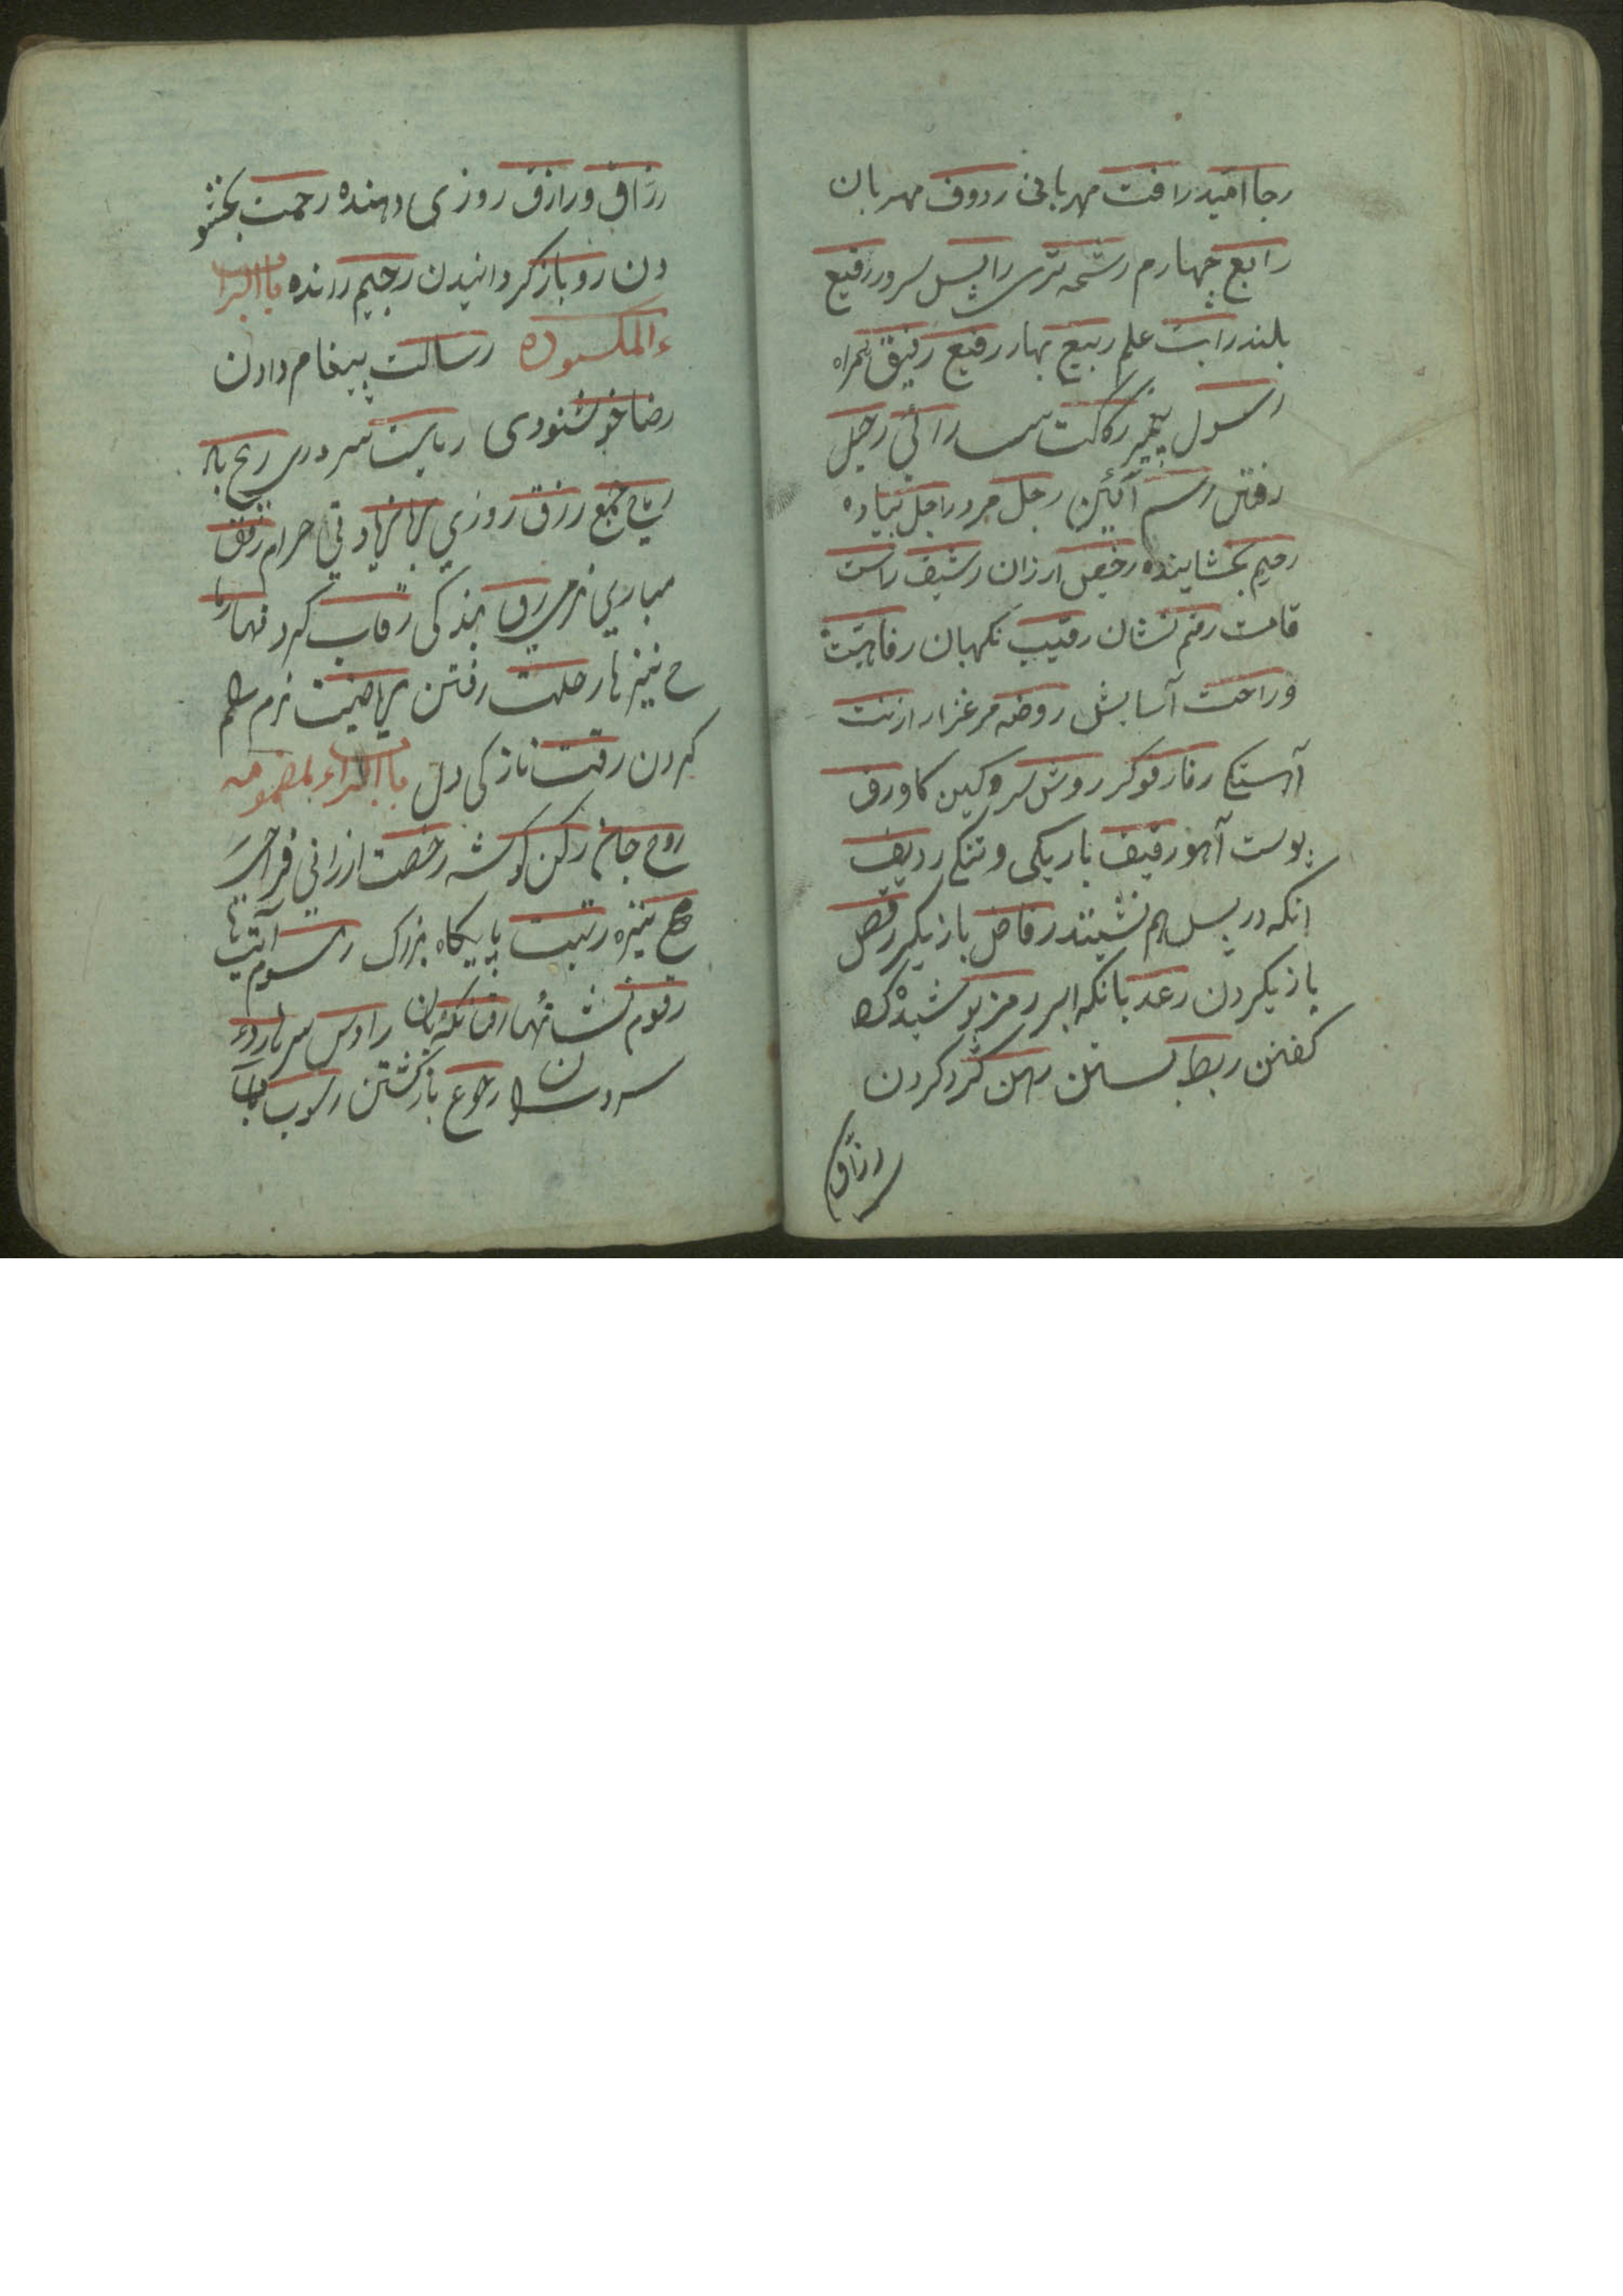 رجا امید رافت مهربانی رووف مهربان
رابع چهارم رشحه تری رایس سرور رفیع
بلند رایت علم ربیع بهار رفیع رفیق همراه
رسول پیغمبر رکاکت رحیل
رفتن رسم آئین رجل مرد راجل پیاده
رحیم بخشاینده رخیص ارزان رشیق راست
قامت رقم نشان رقیب نکهبان رفاهیت
وراحت آسایش روضه مرغزار
آهستکی رفار فوکر روش سرکین کاو رق
پوست آهو رقیق باریکی و تنکی ردیف
انکه در پس هم نشیند رقاص بازیکر رقص
بازیکردن رعد بانکه ابر رمز پوشیده
کفتن ربط بستن رهن کرو کردن
رزاق
رزاق ورازق روزی دهنده رحمت بخشو
دن رد باز کردانیدن رجیم رانده باالرا
ء المکسوره رسالت پیغام دادن
رضا خوشنودی ریاست سروری ریح باد
ریاح جمع رزق روزی حرام رفق
نرمی رق بندکی رقاب کردنها رما
ح نیزها رحلت رفتن نرم
کردن رقت نازکی دل باالراء المضمومه
روح جان رکن کوشه رخصت ارزانی
مح نیزه رتبت پایکاه بزرک رسوم آئینها
رقوم نشانها روس سرها
سرود رجوع بازکشتن رسوب